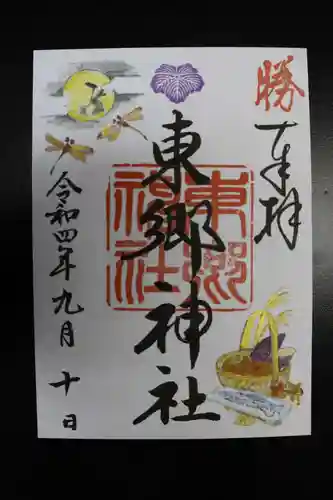 勝
奉拝
東郷神社
東郷神社
令和四年九月十日